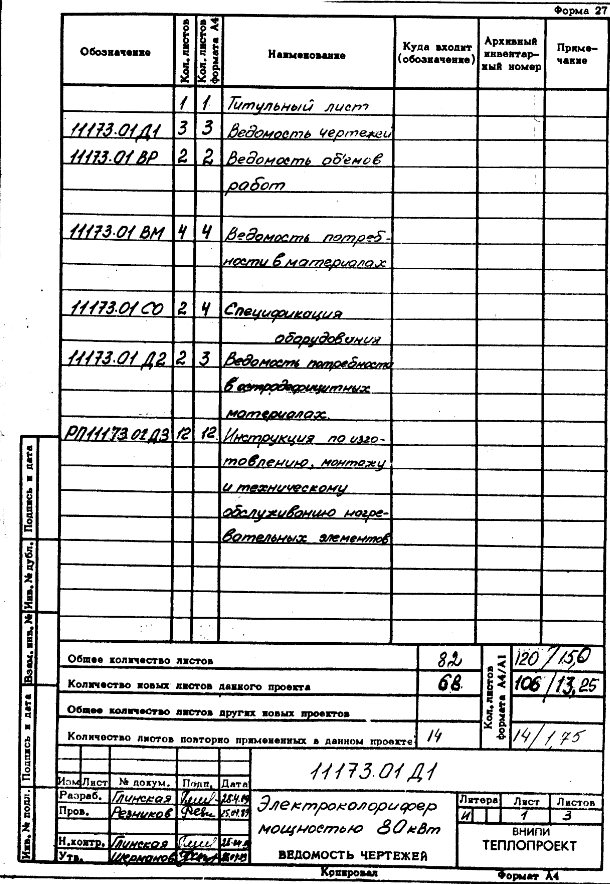 Форма 27
Обозначение Кол. листов Кол. листов формата А4 Наименование Куда входит (обозначение) Архивный инвентарный номер Примечание
1 1 Титульный лист
11173.01 Д1 3 3 Ведомость чертежей
11173.01 ВР 2 2 Ведомость объемов
работ
11173.01 ВМ 4 4 Ведомость потреб-
ности в материалах
11173.01 СО 2 4 Спецификация
оборудования
11173.01 Д2 2 3 Ведомость потребности
в остродефицитных
материалах.
РП11173.02 Д3 12 12 Инструкция по изго-
товлению, монтажу
и техническому
обслуживанию нагре-
вательных элементов
Общее количество листов 82 Кол. листов формата А4/А1 120/15,0
Количество новых листов данного проекта 68 106/13,25
Общее количество листов других новых проектов
Количество листов повторно примененных в данном проекте 14 14/1,75
Инв. № подл. Подпись и дата Взам. инв. № Инв. № дубл. Подпись и дата
11173.01 Д1
Изм Лист № докум. Подп. Дата
Разраб. Глинская
Пров. Резников
Н.контр. Глинская
Утв. Шерманов
Электроколорифер
мощностью 80 кВт
ВЕДОМОСТЬ ЧЕРТЕЖЕЙ
Литера Лист Листов
И 1 3
ВНИПИ
ТЕПЛОПРОЕКТ
Копировал Формат А4